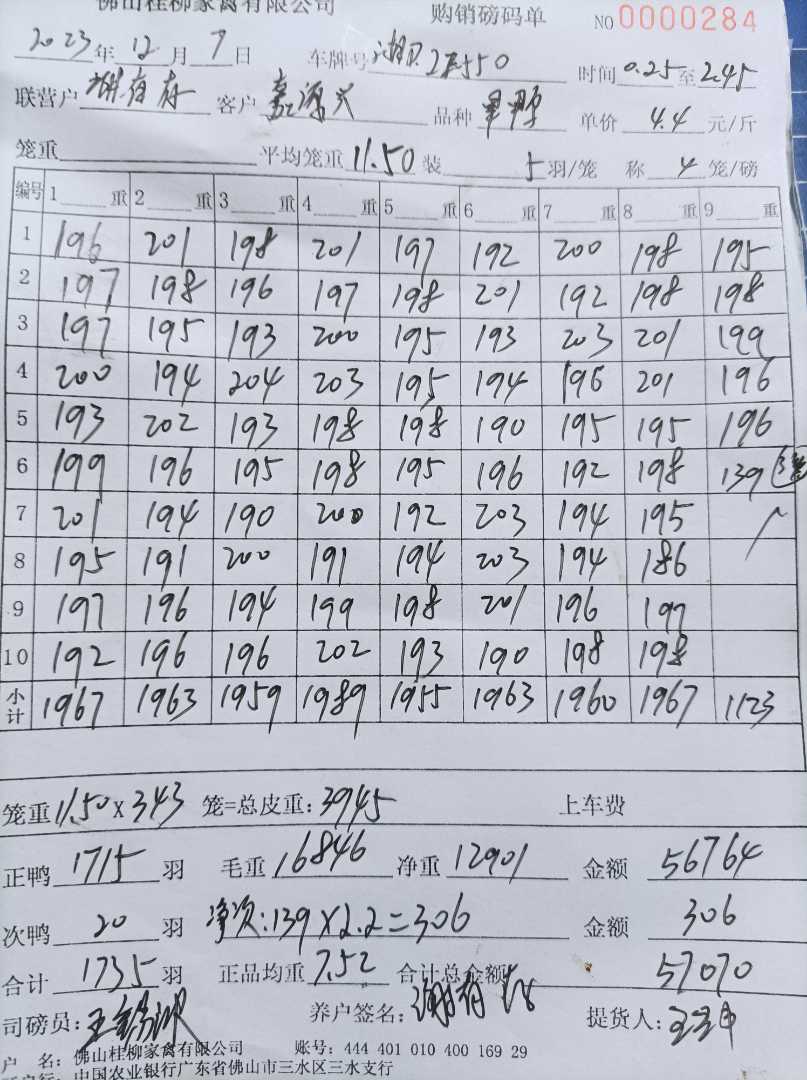 佛山桂柳家禽有限公司 购销磅码单 NO 0000284
2023年 12 月 7 日 车牌号 湘 550 时间 0.25 至 2.45
联营户 谢有存 客户 源兴 品种 单价 4.4 元/斤
笼重 平均笼重 11.50 装 5 羽/笼 称 4 笼/磅
编号 1 重 2 重 3 重 4 重 5 重 6 重 7 重 8 重 9 重
1 196 201 198 201 197 192 200 198 195
2 197 198 196 197 198 201 192 198 198
3 197 195 193 200 195 193 203 201 199
4 200 194 204 203 195 194 196 201 196
5 193 202 193 198 198 190 195 195 196
6 199 196 195 198 195 196 192 198 139
7 201 194 190 200 192 203 194 195
8 195 191 200 191 194 203 194 186
9 197 196 194 199 198 201 196 197
10 192 196 196 202 193 190 198 198
小计 1967 1963 1959 1989 1955 1963 1960 1967 1123
笼重 11.50 x 343 笼=总皮重: 3945 上车费
正鸭 1715 羽 毛重 16846 净重 12901 金额 56764
次鸭 20 羽 净次:139 x 2.2 = 306 金额 306
合计 1735 羽 正品均重 7.52 合计总金额 57070
司磅员: 养户签名: 提货人:
户 名: 佛山桂柳家禽有限公司 账号: 444 401 010 400 169 29
开户行: 中国农业银行广东省佛山市三水区三水支行